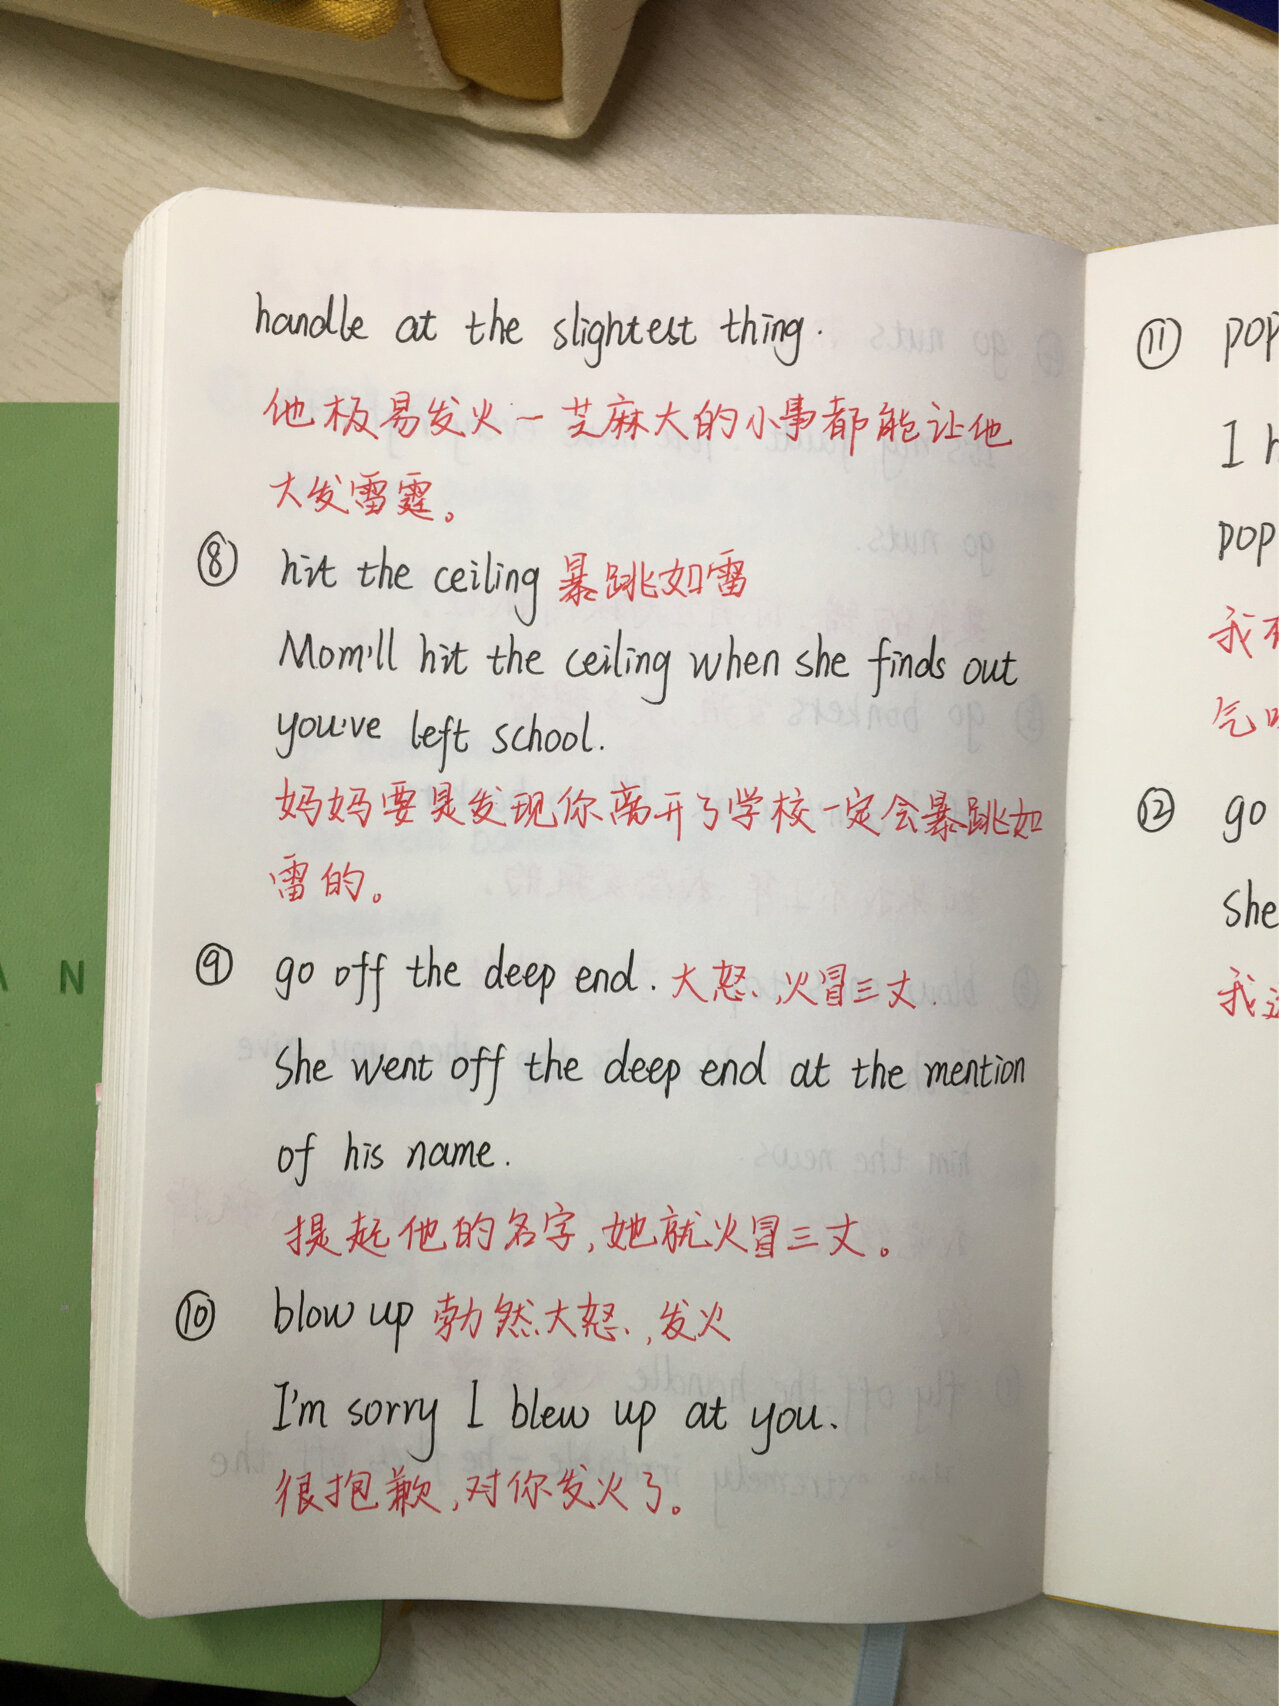 handle at the slightest thing.
他极易发火一芝麻大的小事都能让他
大发雷霆。
⑧ hit the ceiling 暴跳如雷
Mom'll hit the ceiling when she finds out
you've left school.
妈妈要是发现你离开了学校一定会暴跳如
雷的。
⑨ go off the deep end. 大怒,火冒三丈.
She went off the deep end at the mention
of his name.
提起他的名字,她就火冒三丈。
⑩ blow up 勃然大怒,发火
I'm sorry I blew up at you.
很抱歉,对你发火了。
⑪ pop
I
pop
我
气
⑫ go
She
我
A N